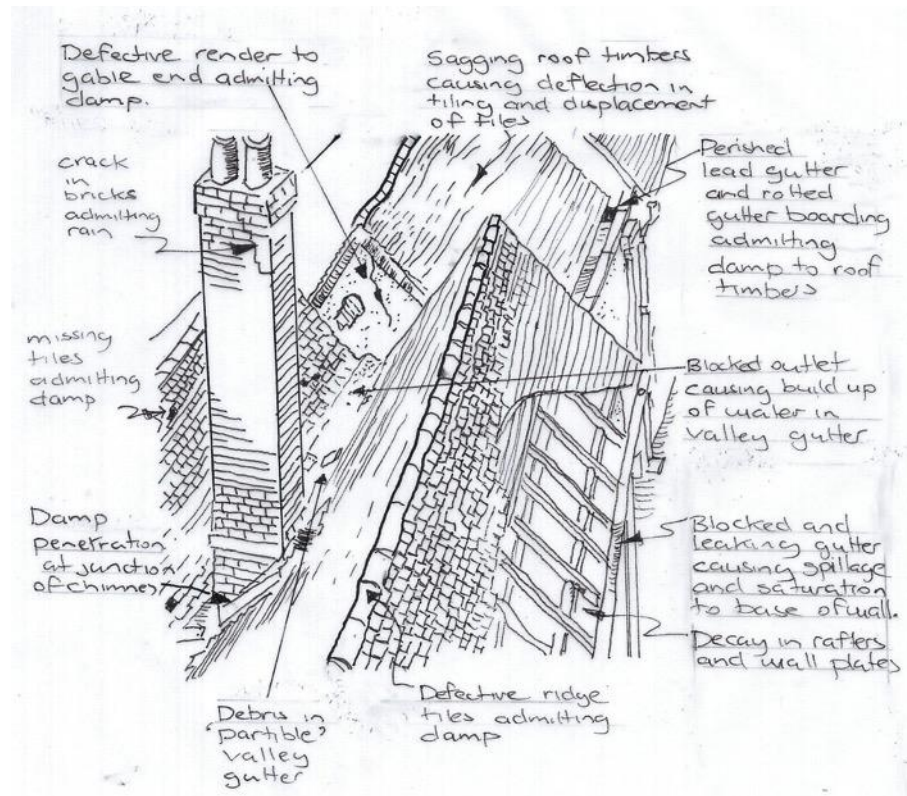 Defective render to
gable end admitting
damp.
Sagging roof timbers
causing deflection in
tiling and displacement
of tiles
crack
in
bricks
admitting
rain
Perished
lead gutter
and rotted
gutter boarding
admitting
damp to roof
timbers
missing
tiles
admitting
damp
Blocked outlet
causing build up
of water in
valley gutter
Damp
penetration
at junction
of chimney
Blocked and
leaking gutter
causing spillage
and saturation
to base of wall.
Decay in rafters
and wall plates
Defective ridge
tiles admitting
damp
Debris in
'partible'
valley
gutter